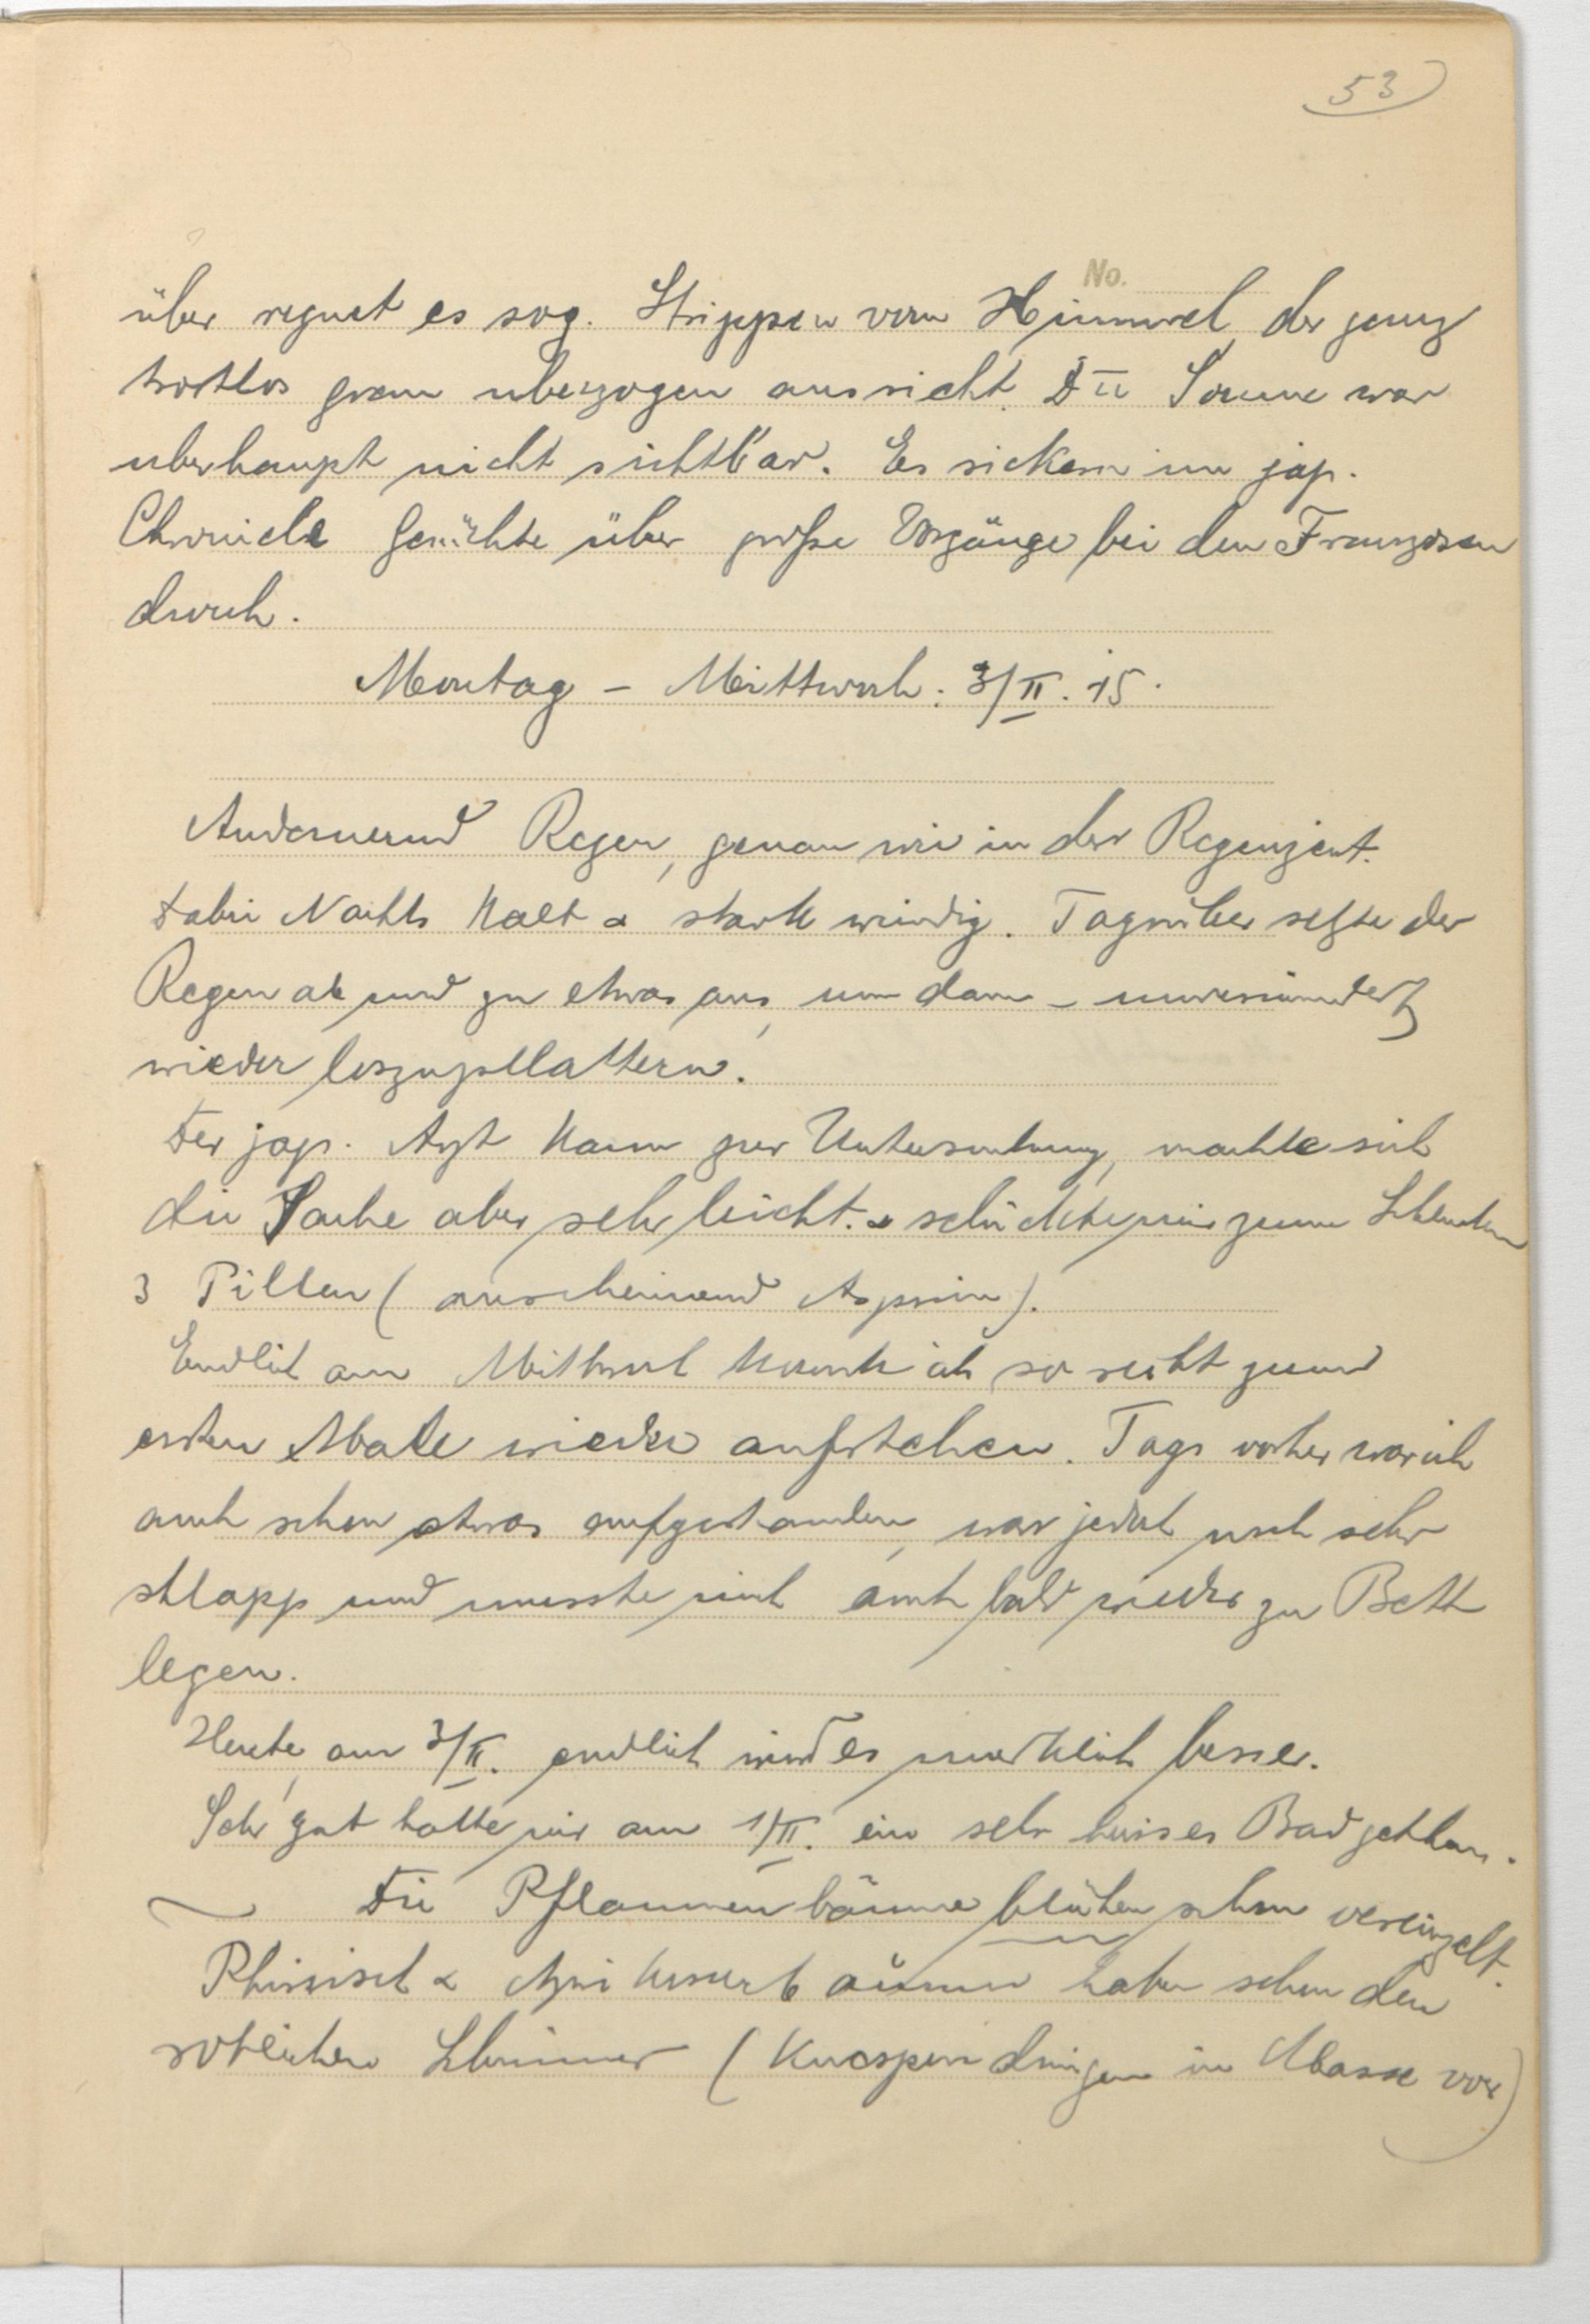 53
No.
über regnet es sog. Strippen vom Himmel, der ganz
trostlos grau uberzogen aussieht. Die Sonne war
uberhaupt nicht sichtbar. Es sickern im jap.
Chronicle Gerüchte über große Vorgänge bei den Franzosen
durch.
Montag - Mittwoch. 3/II. 15.
Andauernd Regen, genau wie in der Regenzeit.
dabei Nachts kalt & stark windig. Tagsüber setzte der
Regen ab und zu etwas aus, um dann - unvermindert
wieder loszupllattern.
Der jap. Arzt kam zur Untersuchung, machte sich
die Sache aber sehr leicht. & schickte mir zum Schlucken
3 Pillen (anscheinend Aspirin).
Endlich am Mittwoch konnte ich so recht zum
ersten Male wieder aufstehen. Tags vorher war ich
auch schon etwas aufgestanden, war jedoch noch sehr
schlapp und musste mich auch bald wieder zu Bett
legen.
Heute, am 3/II. endlich wird es merklich besser.
Sehr gut hatte mir am 1/II. ein sehr heises Bad gethan.
Die Pflaumenbäume blühen schon vereinzelt.
Pfirsisch & Aprikosenbäume haben schon den
rotlichen Schimmer (Knospen dringen in Masse vor)